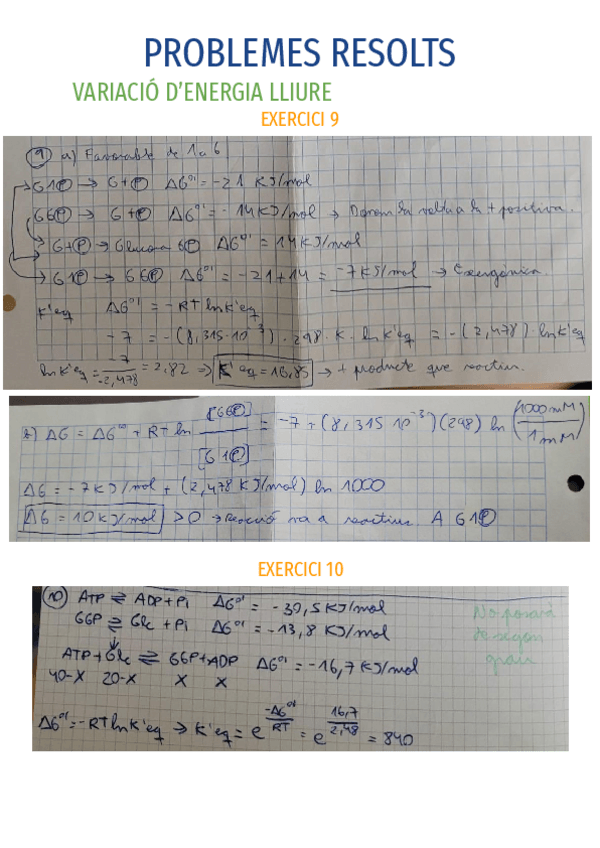 PROBLEMES RESOLTS
VARIACIÓ D'ENERGIA LLIURE
EXERCICI 9
9) a) Favorable de 1 a 6
G1Ⓟ → G+Ⓟ ΔG°' = -21 KJ/mol
G6Ⓟ → G+Ⓟ ΔG°' = -14KJ/mol → Donem la volta a la + positiva.
G+Ⓟ → Glucosa 6Ⓟ ΔG°' = 14KJ/mol
G1Ⓟ → G6Ⓟ ΔG°' = -21+14 = -7KJ/mol → Exergònica.
K'eq ΔG°' = -RT ln K'eq
-7 = -(8,315·10⁻³)·298·K·ln K'eq = -(2,478)·ln K'eq
ln K'eq = -7/-2,478 = 2,82 => K'eq = 16,85 → + producte que reactiu.
b) ΔG = ΔG°' + RT ln [G6Ⓟ]/[G1Ⓟ] = -7 + (8,315 10⁻³)(298) ln (1000mM/1mM)
ΔG = -7KJ/mol + (2,478 KJ/mol) ln 1000
ΔG = 10KJ/mol > 0 → Reacció va a reactius A G1Ⓟ
EXERCICI 10
10) ATP ⇌ ADP+Pi ΔG°' = -30,5KJ/mol
G6P ⇌ Glc + Pi ΔG°' = -13,8 KJ/mol
No posarà de segon grau
ATP+Glc ⇌ G6P+ADP ΔG°' = -16,7KJ/mol
40-X 20-X X X
ΔG°' = -RT ln K'eq → K'eq = e^(-ΔG°'/RT) = e^(16,7/2,48) = 840